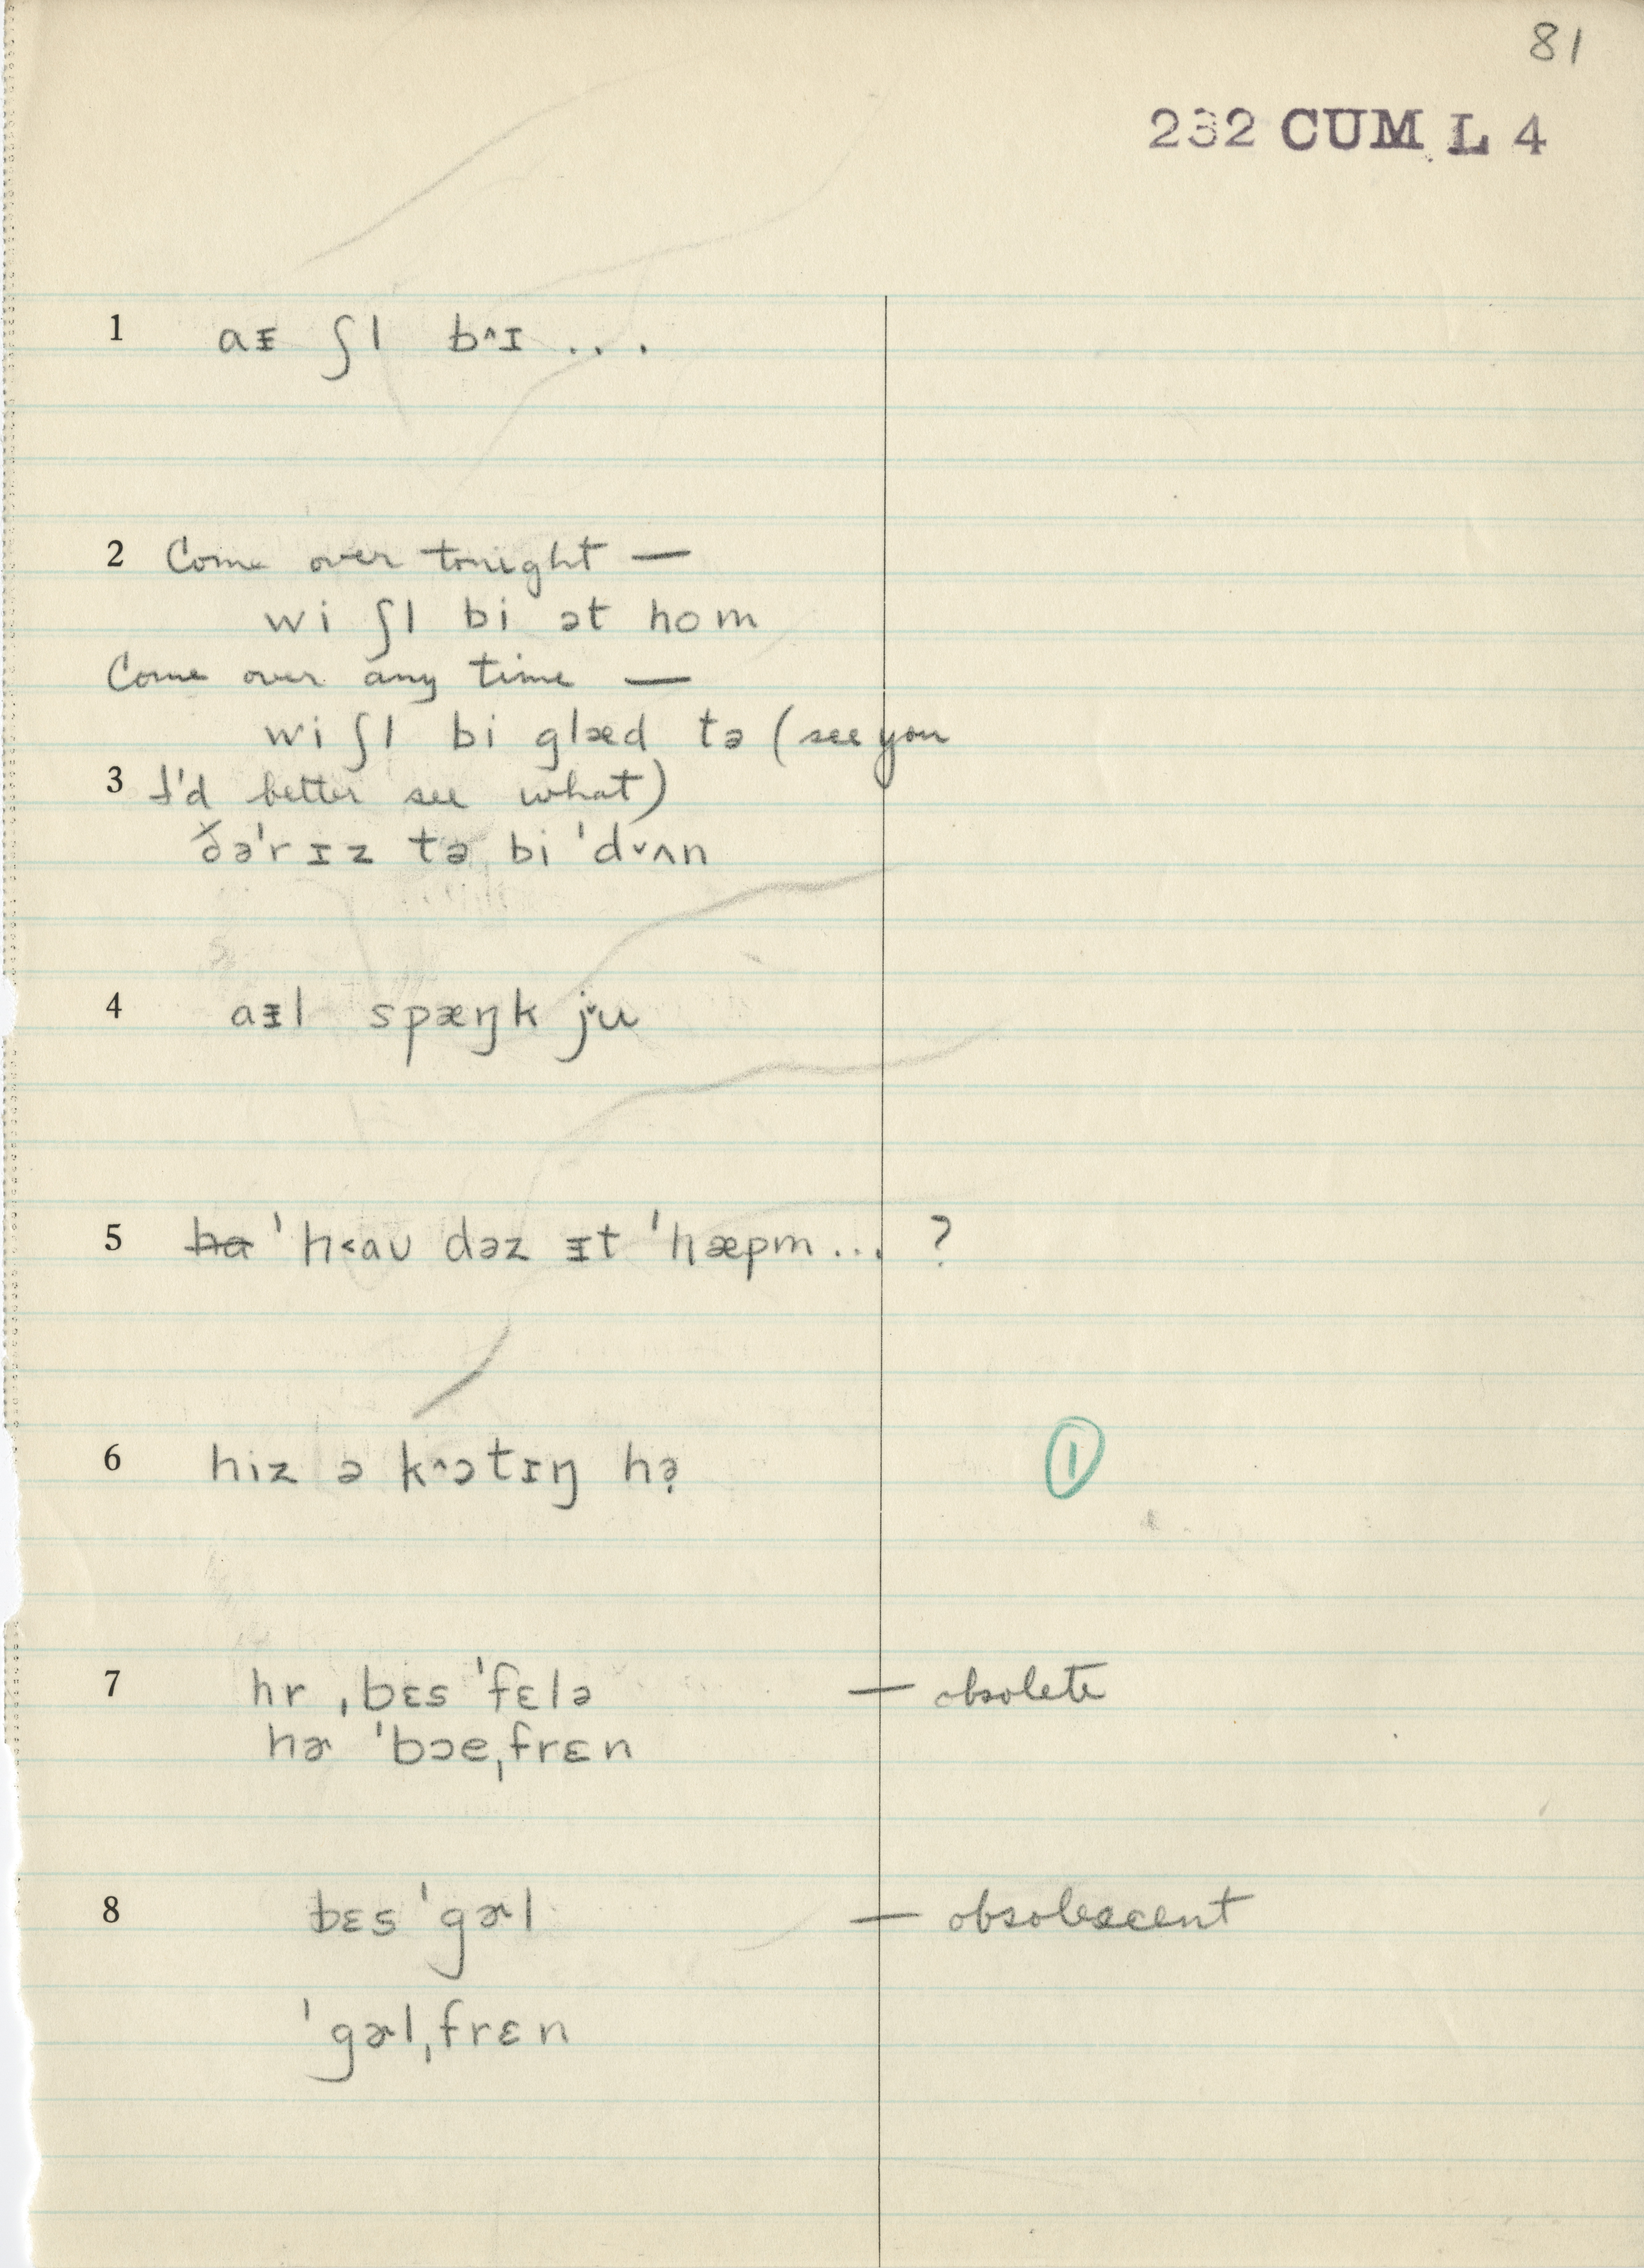 81
232 CUM L 4
1 aᵻ ʃl b^ɪ . . .
2 Come over tonight —
wi ʃl bi ət hom
Come over any time —
wi ʃl bi glæd tə (see you
3 I'd better see what)
ðə'rɪz tə bi 'd˅ʌn
4 aᵻl spæŋk j˅u
5 ha 'h<aʊ dəz ᵻt 'hæpm... ?
6 hiz ə k^ɔtɪŋ hə̣ ①
7 hr ˌbɛs 'fɛlə — obsolete
hɚ 'bɔeˌfrɛn
8 bɛs 'gɚl — obsolescent
'gɚlˌfrɛn